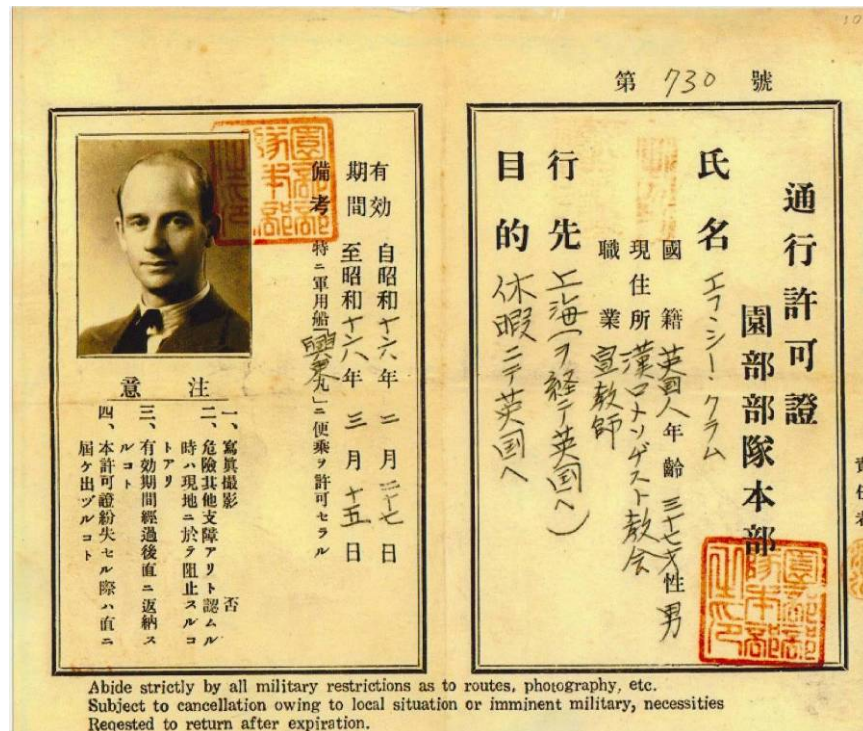 第 730 號
通行許可證
園部部隊本部
氏名 エフ・シー・クラム
國籍 英国人 年齢 三十七才 性 男
現住所 漢口メソヂスト教会
職業 宣教師
行先 上海(ヲ経テ英国ヘ)
目的 休暇ニテ英国ヘ
園部部隊本部之印
有効期間
自昭和十六年 二月 二十七日
至昭和十六年 三月 十五日
備考 特ニ軍用船「興東丸」ニ便乗ヲ許可セラル
園部部隊本部之印
注意
一、寫眞撮影 否
二、危險其他支障アリト認ムル
時ハ現地ニ於テ阻止スルコ
トアリ
三、有効期間經過後直ニ返納ス
ルコト
四、本許可證紛失セル際ハ直ニ
届ケ出ヅルコト
Abide strictly by all military restrictions as to routes, photography, etc.
Subject to cancellation owing to local situation or imminent military, necessities
Reqested to return after expiration.